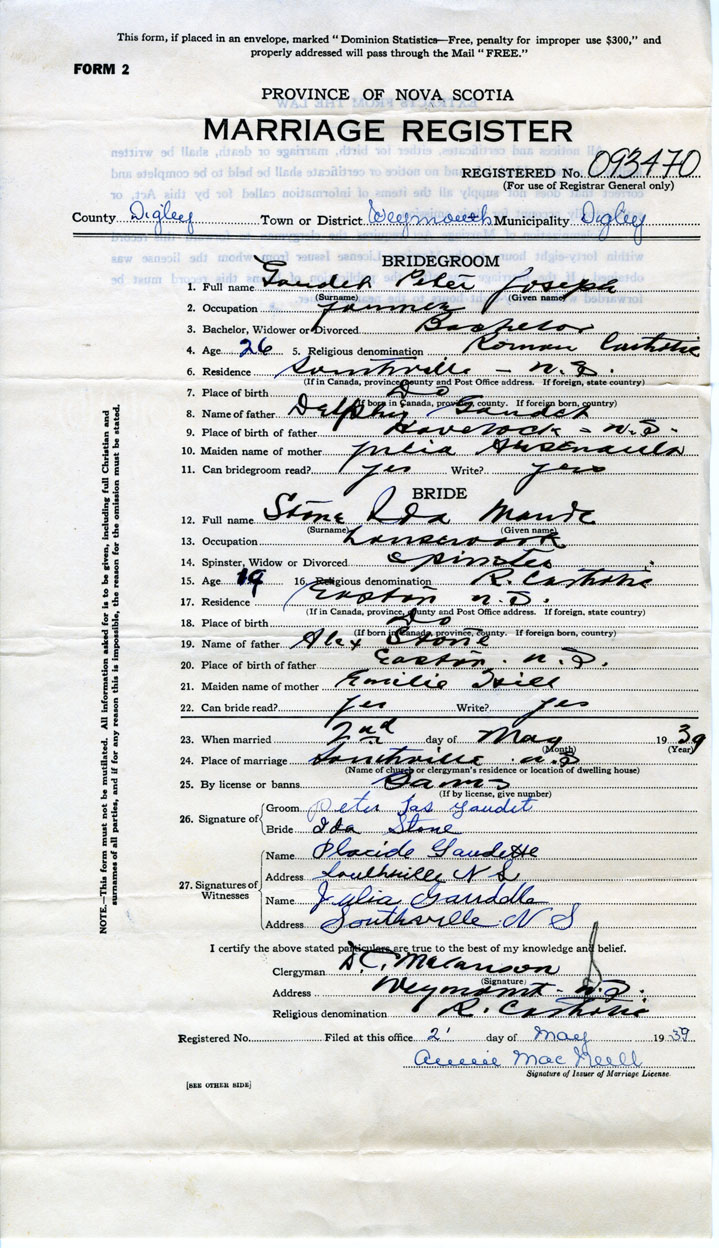 This form, if placed in an envelope, marked "Dominion Statistics—Free, penalty for improper use $300," and
properly addressed will pass through the Mail "FREE."
FORM 2
PROVINCE OF NOVA SCOTIA
MARRIAGE REGISTER
REGISTERED No. 093470
(For use of Registrar General only)
County Digby Town or District Weymouth Municipality Digby
BRIDEGROOM
1. Full name Gaudet Peter Joseph
(Surname) (Given name)
2. Occupation Farmer
3. Bachelor, Widower or Divorced Bachelor
4. Age 26 5. Religious denomination Roman Catholic
6. Residence Southville - N.S.
(If in Canada, province, county and Post Office address. If foreign, state country)
7. Place of birth Do
(If born in Canada, province, county. If foreign born, country)
8. Name of father Delphis Gaudet
9. Place of birth of father Havelock - N.S.
10. Maiden name of mother Julia Arsenault
11. Can bridegroom read? yes Write? yes
BRIDE
12. Full name Stone Ida Maude
(Surname) (Given name)
13. Occupation Housework
14. Spinster, Widow or Divorced Spinster
15. Age 19 16. Religious denomination R. Catholic
17. Residence Easton N.S.
(If in Canada, province, county and Post Office address. If foreign, state country)
18. Place of birth Do
(If born in Canada, province, county. If foreign born, country)
19. Name of father Alex Stone
20. Place of birth of father Easton. N.S.
21. Maiden name of mother Emilie Hill
22. Can bride read? yes Write? yes
23. When married 2nd day of May 1939
(Month) (Year)
24. Place of marriage Southville N.S
(Name of church or clergyman's residence or location of dwelling house)
25. By license or banns Banns
(If by license, give number)
26. Signature of
Groom Peter Jas Gaudet
Bride Ida Stone
27. Signatures of Witnesses
Name Placide Gaudette
Address Southville N S
Name Julia
Address Southville N S
I certify the above stated particulars are true to the best of my knowledge and belief.
Clergyman
(Signature)
Address Weymouth - N.S.
Religious denomination R. Catholic
Registered No. Filed at this office 2' day of May 1939
Annie Mac Neill
Signature of Issuer of Marriage License
[SEE OTHER SIDE]
NOTE.—This form must not be mutilated. All information asked for is to be given, including full Christian and
surnames of all parties, and if for any reason this is impossible, the reason for the omission must be stated.